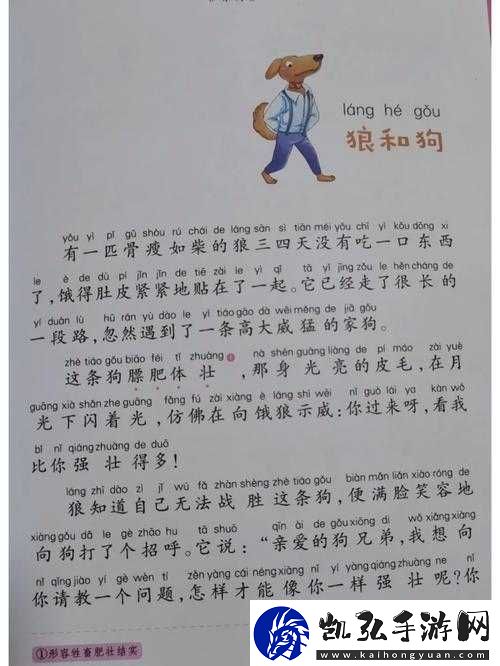 láng hé gǒu
狼和狗
yǒu yì pǐ gǔ shòu rú chái de láng sān sì tiān méi yǒu chī yì kǒu dōng xi
有一匹骨瘦如柴的狼三四天没有吃一口东西
le è de dù pí jǐn jǐn de tiē zài le yì qǐ tā yǐ jīng zǒu le hěn cháng de
了，饿得肚皮紧紧地贴在了一起。它已经走了很长的
yí duàn lù hū rán yù dào le yì tiáo gāo dà wēi měng de jiā gǒu
一段路，忽然遇到了一条高大威猛的家狗。
zhè tiáo gǒu biāo féi tǐ zhuàng ① nà shēn guāng liàng de pí máo zài yuè
这条狗膘肥体壮，那身光亮的皮毛，在月
guāng xià shǎn zhe guāng fǎng fú zài xiàng è láng shì wēi nǐ guò lái ya kàn wǒ
光下闪着光，仿佛在向饿狼示威：你过来呀，看我
bǐ nǐ qiáng zhuàng de duō
比你强壮得多！
láng zhī dào zì jǐ wú fǎ zhàn shèng zhè tiáo gǒu biàn mǎn liǎn xiào róng de
狼知道自己无法战胜这条狗，便满脸笑容地
xiàng gǒu dǎ le gè zhāo hu tā shuō qīn ài de gǒu xiōng dì wǒ xiǎng xiàng
向狗打了个招呼。它说：“亲爱的狗兄弟，我想向
nǐ qǐng jiào yí gè wèn tí zěn yàng cái néng xiàng nǐ yí yàng qiáng zhuàng ne nǐ
你请教一个问题，怎样才能像你一样强壮呢？你
①形容牲畜肥壮结实
凯弘手游网
www.kaihongyuan.com